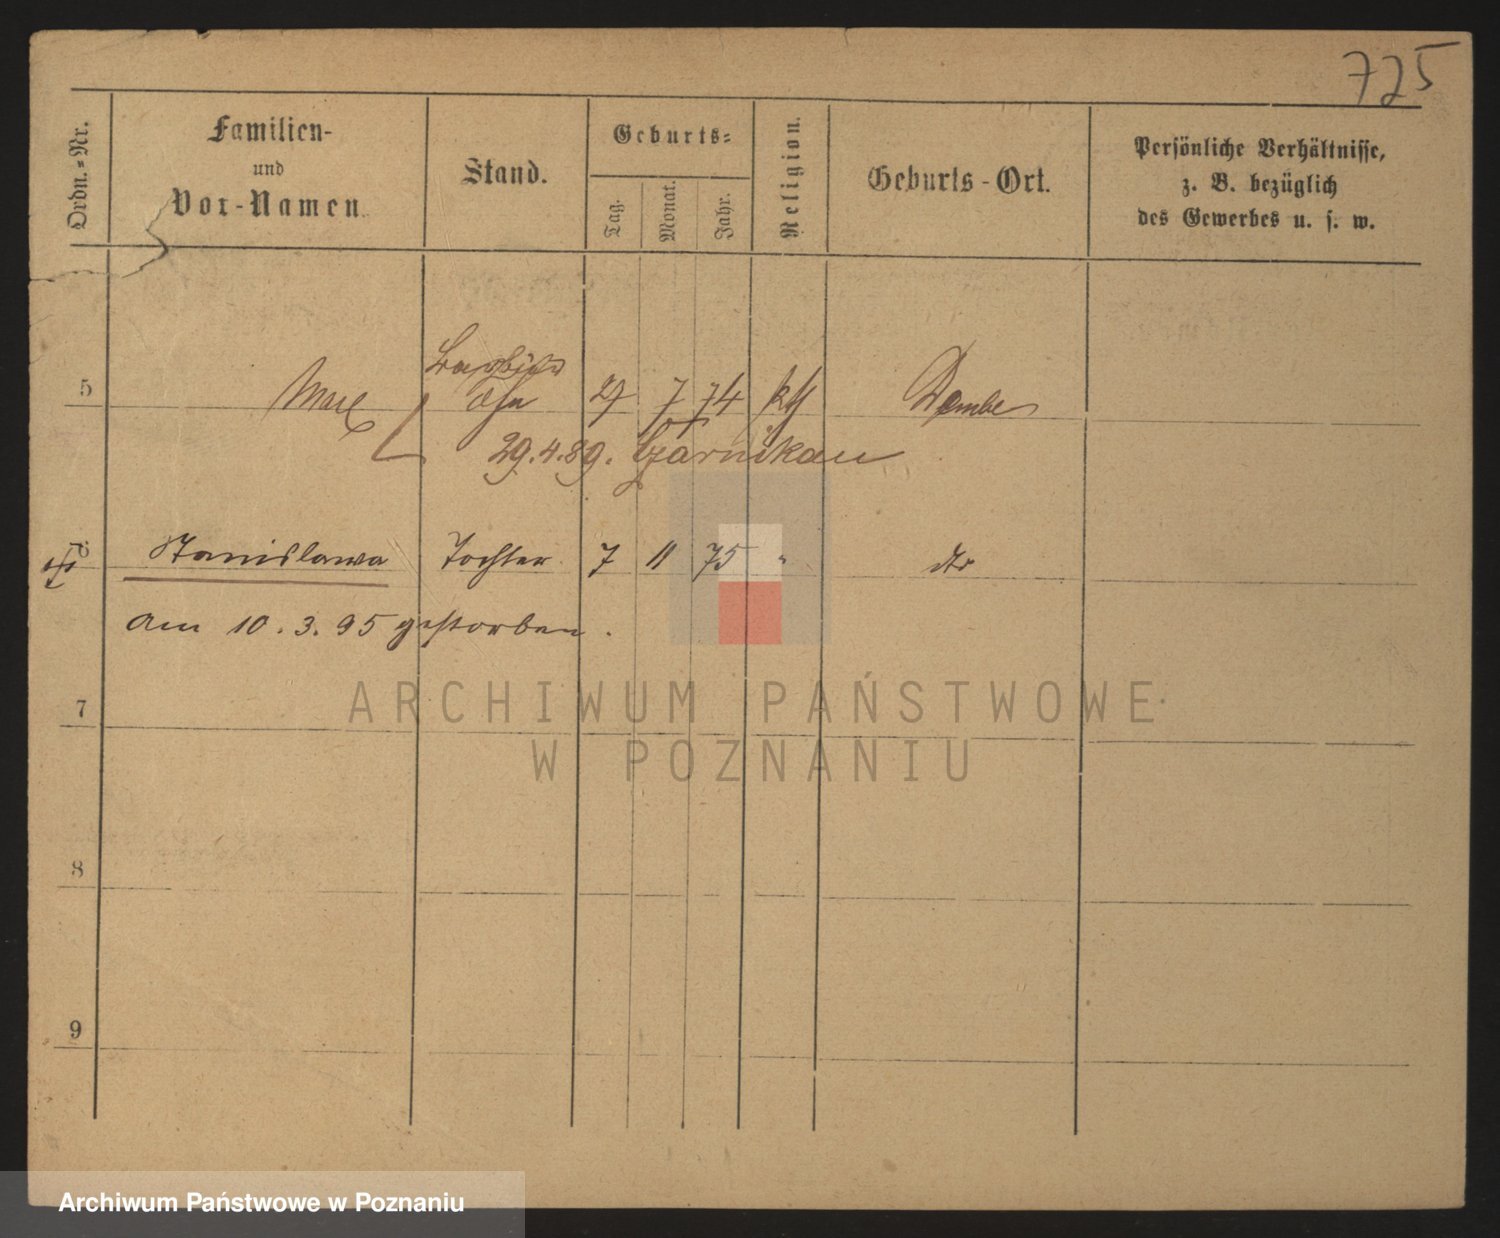 725
Ordn.-Nr.
Familien-
und
Vor-Namen.
Stand.
Geburts-
Tag.
Monat.
Jahr.
Religion.
Geburts-Ort.
Persönliche Verhältnisse,
z. B. bezüglich
des Gewerbes u. s. w.
5 Max 7 74 kth Dembe
29.4.89. Czarnikau
Stanislawa Tochter 7 11 75 " dto
am 10.3.95 gestorben.
7
8
9
ARCHIWUM PAŃSTWOWE
W POZNANIU
Archiwum Państwowe w Poznaniu